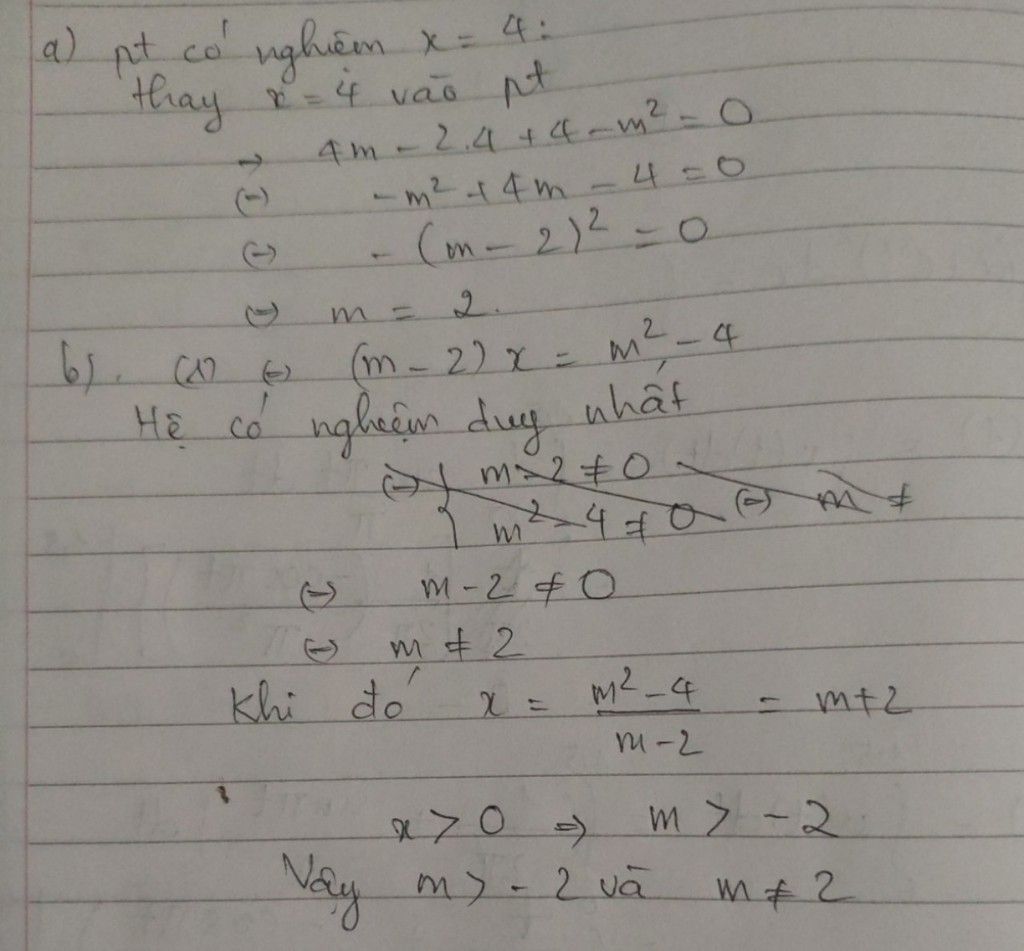 a) pt có nghiệm x = 4:
thay x = 4 vào pt
→ 4m - 2.4 + 4 - m² = 0
(=) -m² + 4m - 4 = 0
(=) - (m - 2)² = 0
(=) m = 2.
b). (1) (=) (m - 2) x = m² - 4
Hệ có nghiệm duy nhất
(=) { m - 2 ≠ 0
m² - 4 ≠ 0 (=) m ≠
(=) m - 2 ≠ 0
(=) m ≠ 2
Khi đó x = (m² - 4)/(m - 2) = m + 2
x > 0 => m > -2
Vậy m > -2 và m ≠ 2